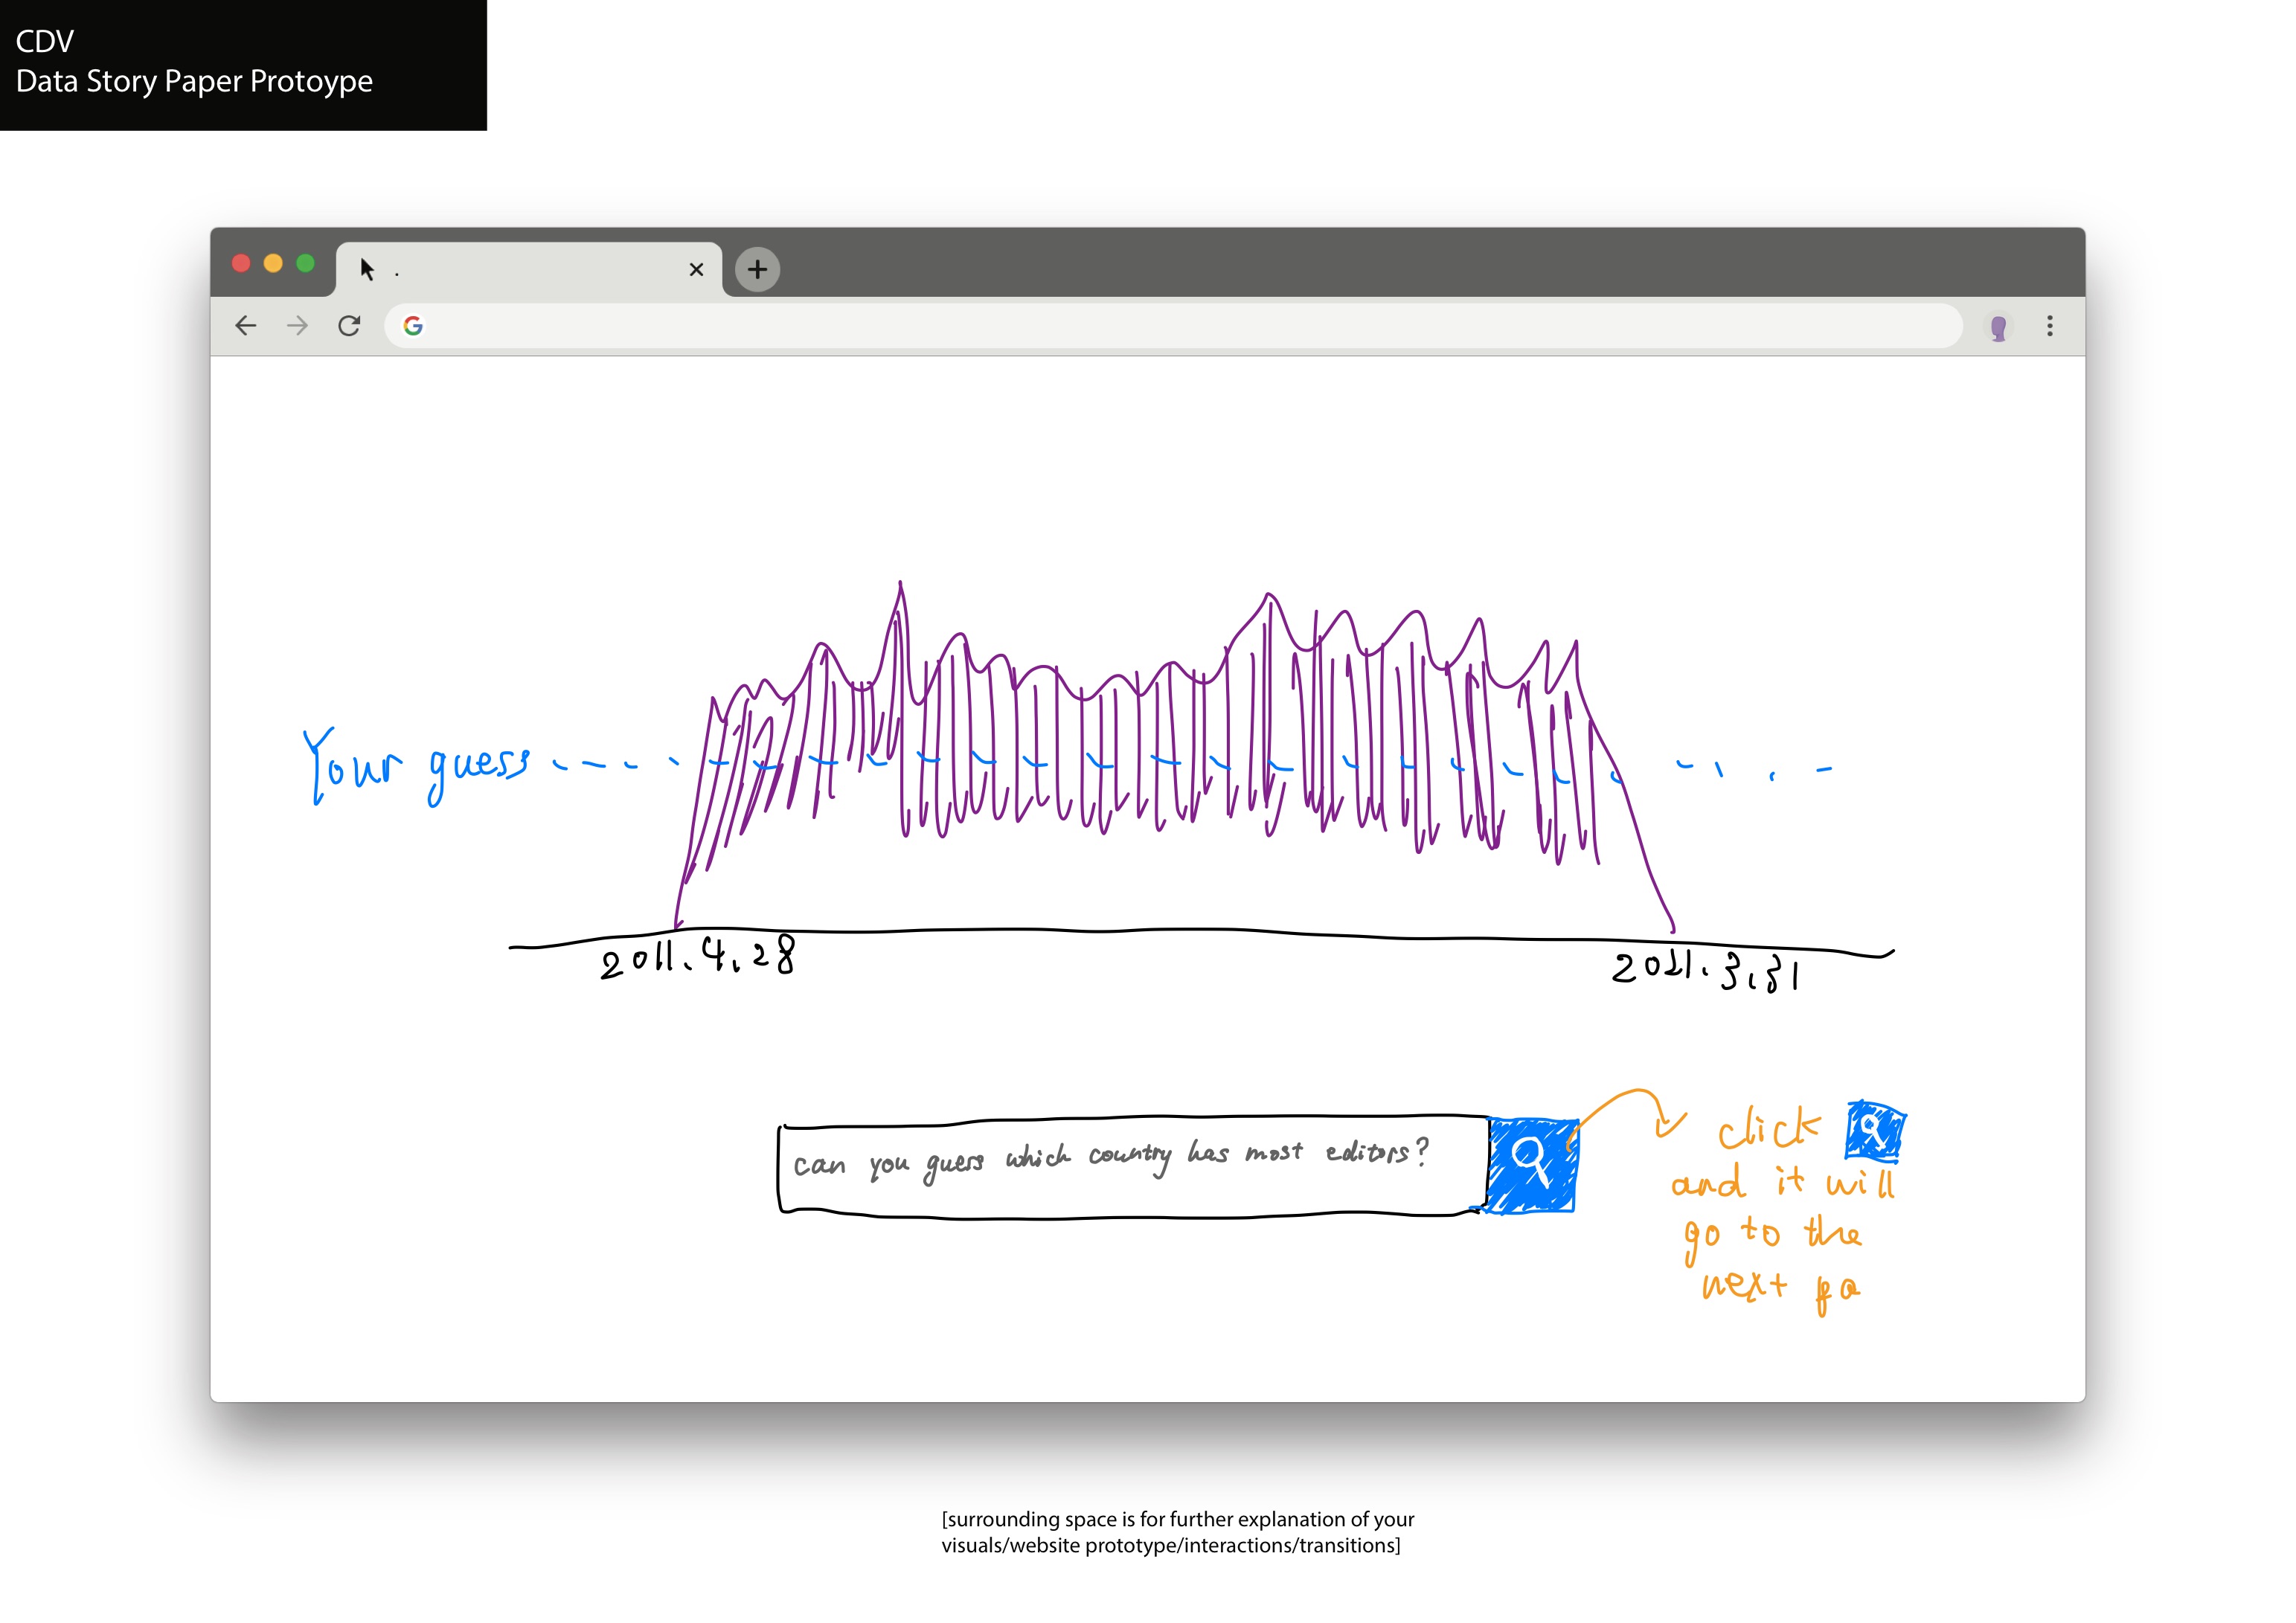 CDV
Data Story Paper Protoype
Your guess
2011.4.28
2021.3.31
can you guess which country has most editors?
click
and it will
go to the
next pa
[surrounding space is for further explanation of your
visuals/website prototype/interactions/transitions]